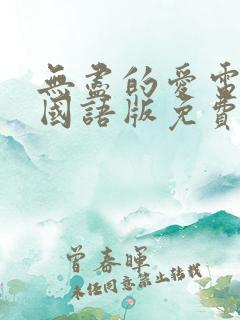 無盡的愛電
國語版免費
曾春暉
未经同意禁止转载